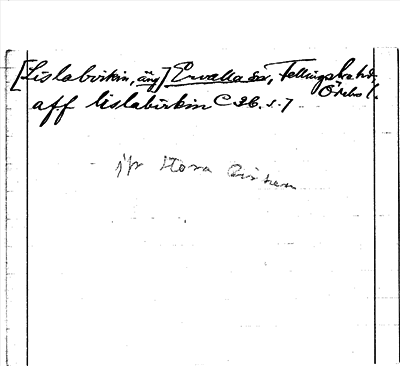 [Lislabirkin, äng] Ervalla sn, Fellingsbro hd,
Örebro l.
aff lislabirkin C 36. s. 7
jfr Stora Birken